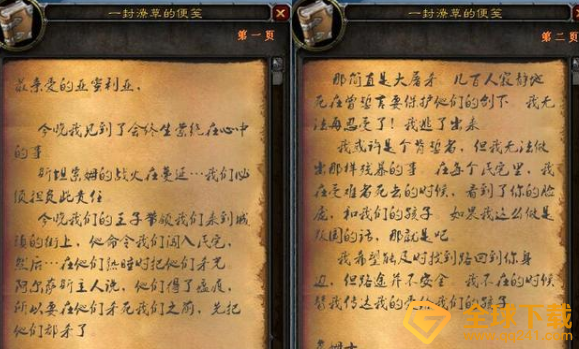 一封潦草的便笺
第一页
最亲爱的亚蜜利亚,
今晚我见到了会终生萦绕在心中
的事
斯坦索姆的战火在蔓延…我们必
须担负此责任
今晚我们的王子带领我们来到城
镇的街上,他命令我们闯入民宅,
然后…在他们熟睡时把他们杀死
阿尔萨斯主人说,他们得了瘟疫,
所以要在他们杀死我们之前,先把
他们都杀了
一封潦草的便笺
第二页
那简直是大屠杀 几百人寂静地
死在曾誓言要保护他们的剑下 我无
法再忍受了!我逃了出来
我或许是个背誓者,但我无法做
出那样残暴的事 在每个民宅里,我
在受难者死去的时候,看到了你的脸
庞,和我们的孩子 如果我这么做是
叛国的话,那就是吧
我希望能及时找到路回到你身
边,但路途并不安全 我不在的时候
替我传达我的爱给我们的孩子
全球下载
www.qq7341.com